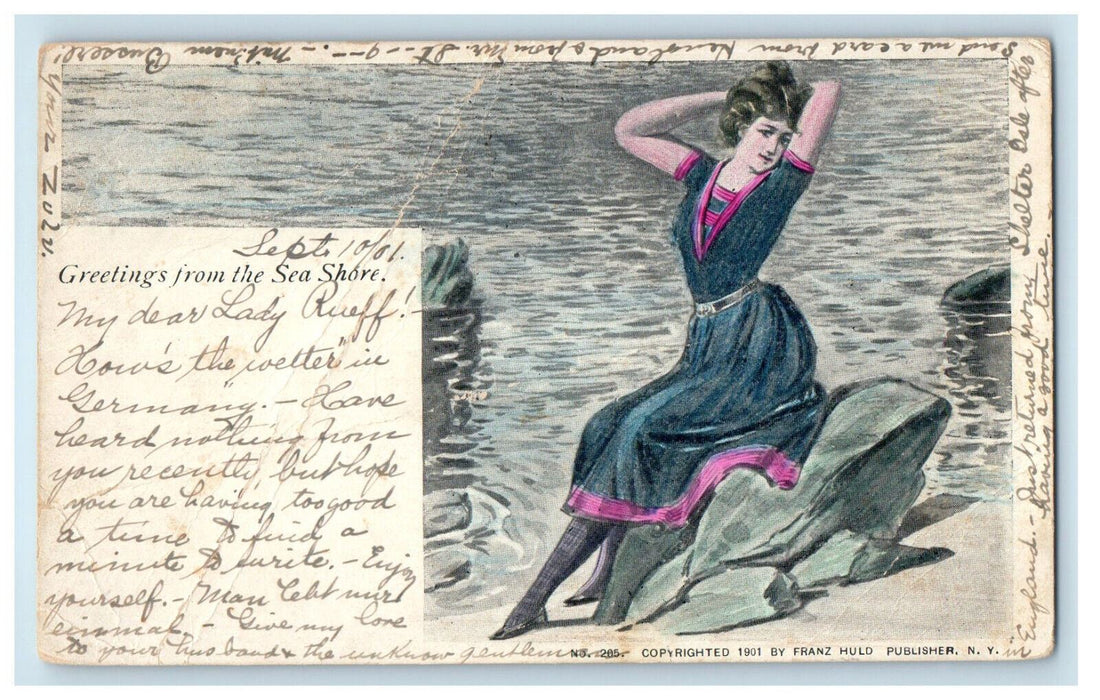 Sept. 10/01.
Greetings from the Sea Shore.
My dear Lady Rueff!-
How's the "wetter" in
Germany". - Have
heard nothing from
you recently, but hope
you are having too good
a time to find a
minute to write. - Enjoy
yourself. - Man lebt nur
einmal - Give my love
to your husband & the unknow gentleman
No. 205. COPYRIGHTED 1901 BY FRANZ HULD PUBLISHER, N. Y.
in
England. - Just returned from Shelter Isle after
having a good time.
Send me a card from England & from
Your Lolu.